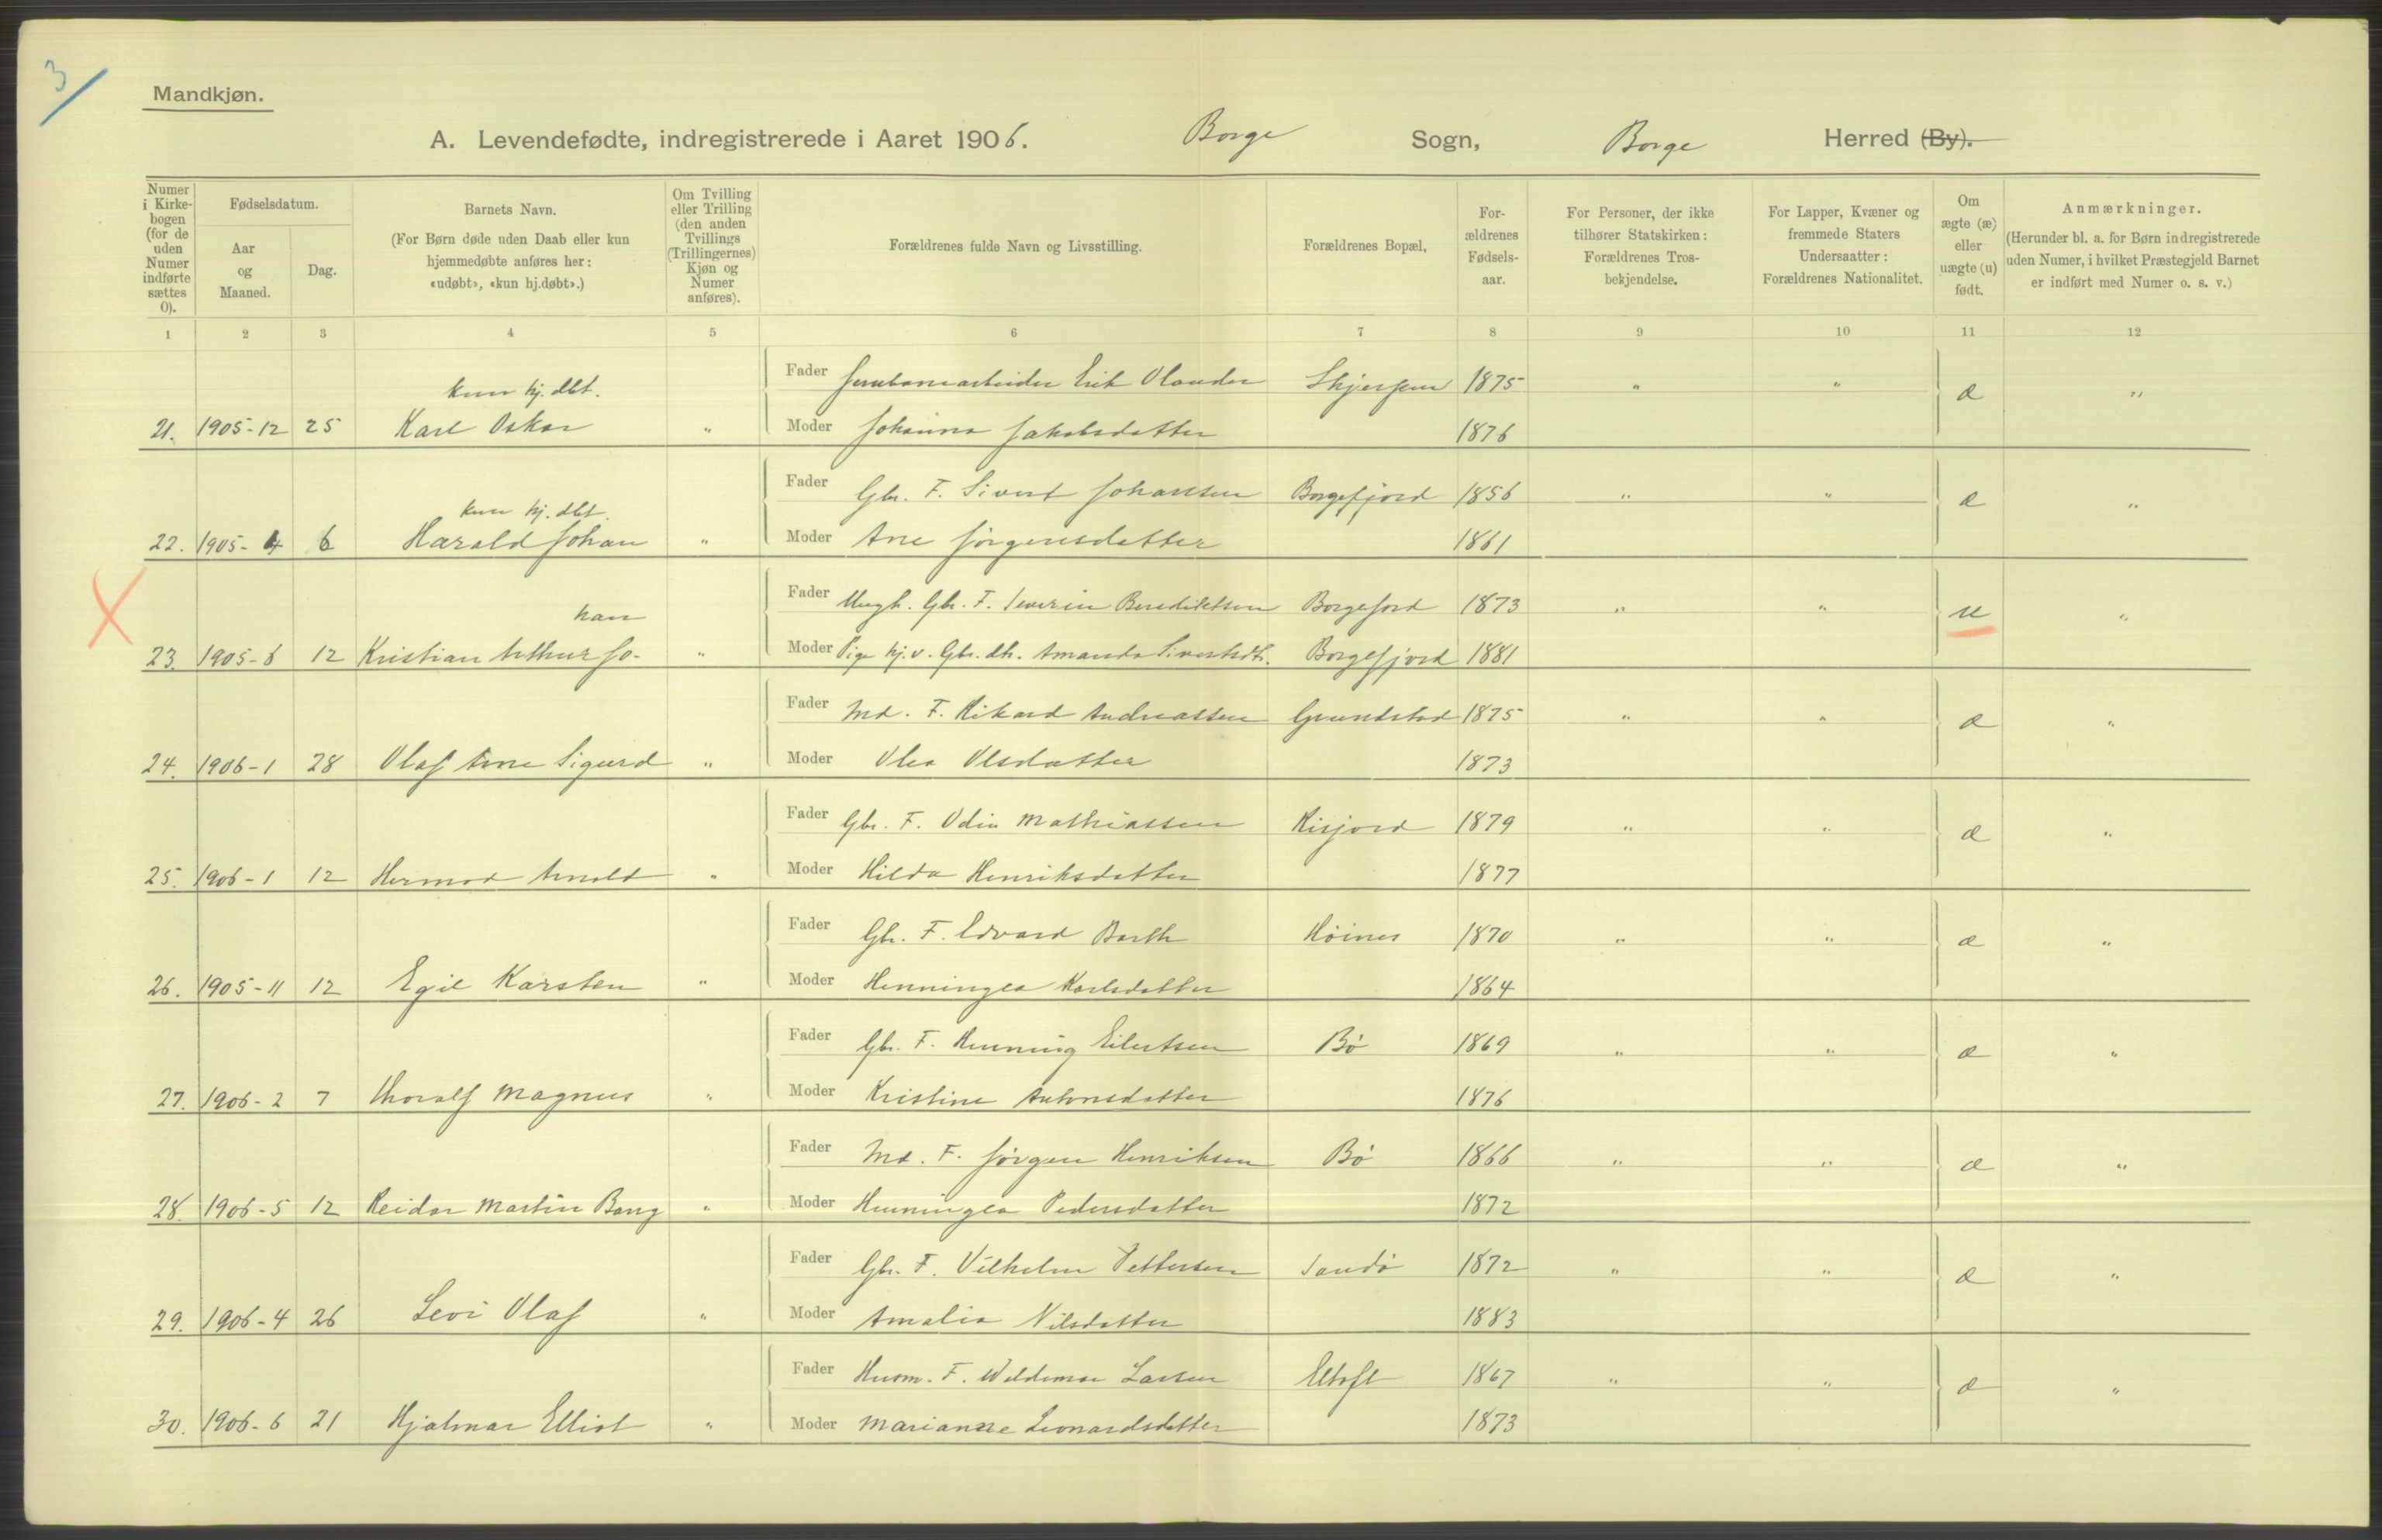 3/
Mandkjøn.
A. Levendefødte, indregistrerede i Aaret 1906. Borge Sogn, Borge Herred (By).
Numer i Kirkebogen (for de uden Numer indførte sættes 0).
Fødselsdatum.
Aar og Maaned.
Dag.
Barnets Navn.
(For Børn døde uden Daab eller kun hjemmedøbte anføres her: «udøbt», «kun hj.døbt».)
Om Tvilling eller Trilling (den anden Tvillings (Trillingernes) Kjøn og Numer anføres).
Forældrenes fulde Navn og Livsstilling.
Forældrenes Bopæl,
Forældrenes Fødselsaar.
For Personer, der ikke tilhører Statskirken: Forældrenes Trosbekjendelse.
For Lapper, Kvæner og fremmede Staters Undersaatter: Forældrenes Nationalitet.
Om ægte (æ) eller uægte (u) født.
Anmærkninger.
(Herunder bl. a. for Børn indregistrerede uden Numer, i hvilket Præstegjeld Barnet er indført med Numer o. s. v.)
1 2 3 4 5 6 7 8 9 10 11 12
Fader Jernbanearbeider Erik Olander 1875 " " æ "
kun hj. dbt.
21. 1905-12 25 Karl Oskar " Moder Johanna Jakobsdatter 1876
Fader Gbr. F. Sivert Johansen Borgefjord 1856 " " æ "
kun hj. dbt.
22. 1905-4 6 Harald Johan " Moder Ane Jörgensdatter 1861
Fader Ungk. Gbr. F. Severin Benediktsen Borgefjord 1873 " " u "
han
23. 1905-6 12 Kristian Arthur Jo- " Moder Pige hj. v. Gbr. dtr. Amanda Sivertsdtr. Borgefjord 1881
Fader Md. F. Rikard Andreassen Grundstad 1875 " " æ "
24. 1906-1 28 Olaf Arne Sigurd " Moder Olea Olsdatter 1873
Fader Gbr. F. Odin Mathiassen Risjord 1879 " " æ "
25. 1906-1 12 Hermod Arnold " Moder Hilda Henriksdatter 1877
Fader Gbr. F. Edvard Barth Höines 1870 " " æ "
26. 1905-11 12 Egil Karsten " Moder Henningea Karlsdatter 1864
Fader Gbr. F. Henning Eilertsen Bö 1869 " " æ "
27. 1906-2 7 Thoralf Magnus " Moder Kristine Antonsdatter 1876
Fader Md. F. Jörgen Henriksen Bö 1866 " " æ "
28. 1906-5 12 Reidar Martin Bang " Moder Henningea Pedersdatter 1872
Fader Gbr. F. Vilhelm Pettersen Sandö 1872 " " æ "
29. 1906-4 26 Levi Olaf " Moder Amalia Nilsdatter 1883
Fader Husm. F. Waldemar Larsen Eltoft 1867 " " æ "
30. 1906-6 21 Hjalmar Elliot " Moder Marianne Leonardsdatter 1873